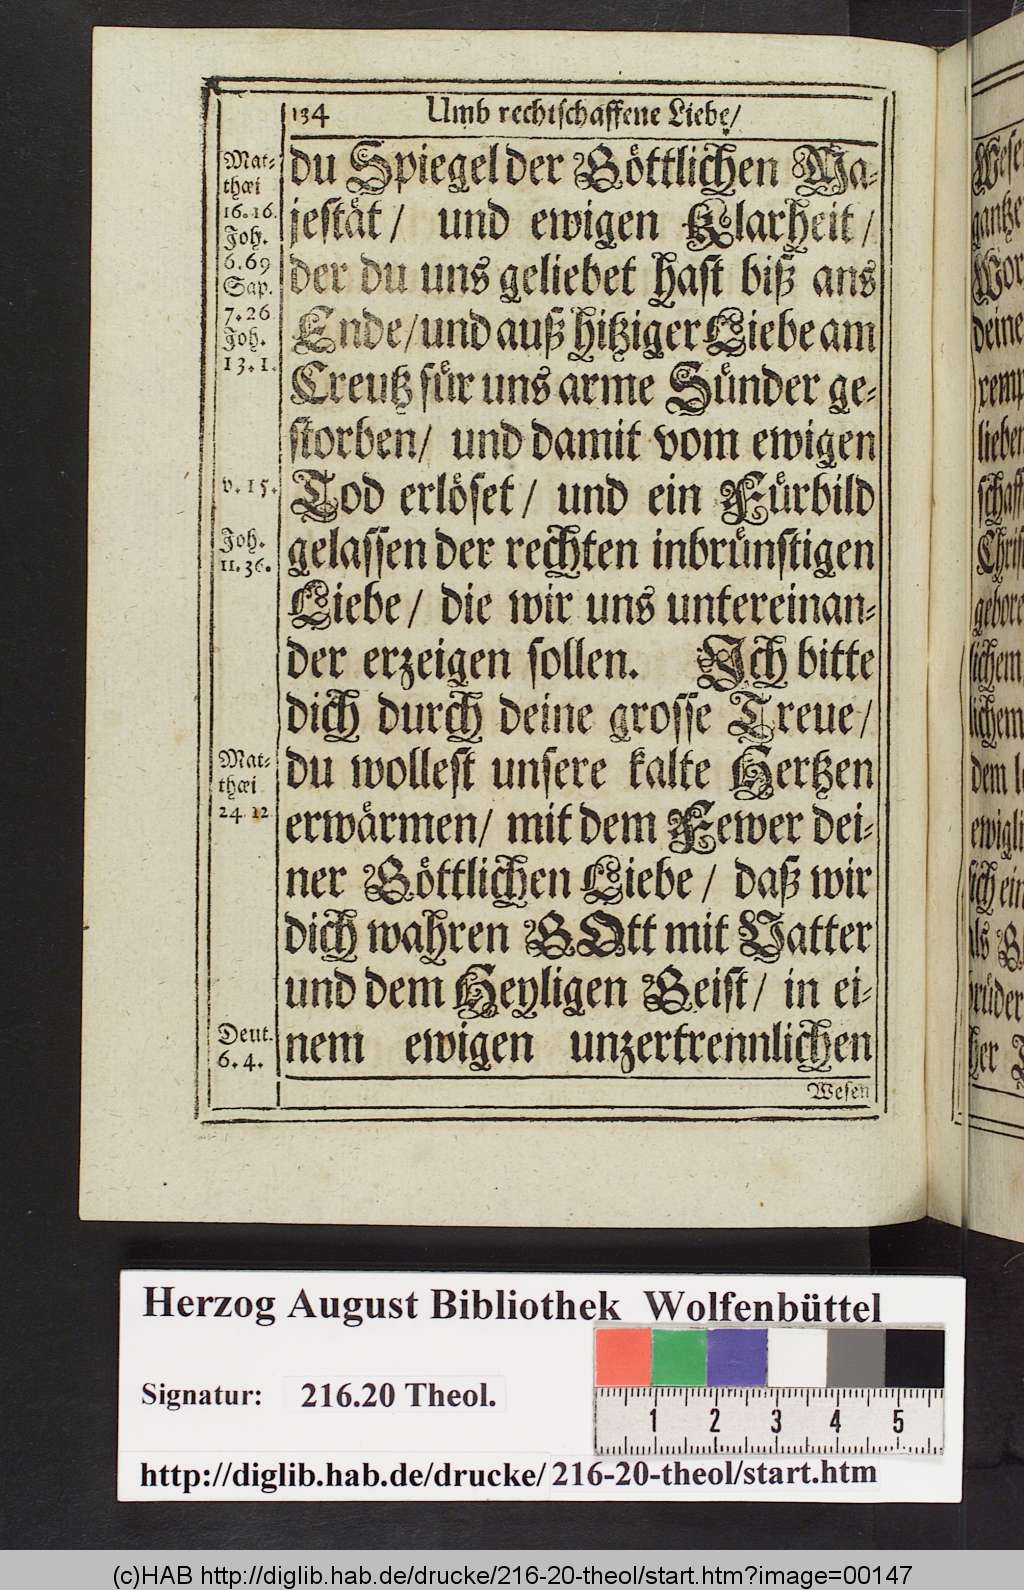 134 Umb rechtschaffene Liebe/
Mat-
thæi
16. 16.
Joh.
6. 69
Sap.
7. 26
Joh.
13. 1.
v. 15.
Joh.
11. 36.
Mat-
thæi
24 12
Deut.
6. 4.
du Spiegel der Göttlichen Ma-
jestät/ und ewigen Klarheit/
der du uns geliebet hast biß ans
Ende/ und auß hitziger Liebe am
Creutz für uns arme Sünder ge-
storben/ und damit vom ewigen
Tod erlöset/ und ein Fürbild
gelassen der rechten inbrünstigen
Liebe/ die wir uns untereinan-
der erzeigen sollen. Ich bitte
dich durch deine grosse Treue/
du wollest unsere kalte Hertzen
erwärmen/ mit dem Fewer dei-
ner Göttlichen Liebe/ daß wir
dich wahren GOtt mit Vatter
und dem Heyligen Geist/ in ei-
nem ewigen unzertrennlichen
Wesen
Herzog August Bibliothek Wolfenbüttel
Signatur: 216.20 Theol.
1 2 3 4 5
http://diglib.hab.de/drucke/216-20-theol/start.htm
(c)HAB http://diglib.hab.de/drucke/216-20-theol/start.htm?image=00147